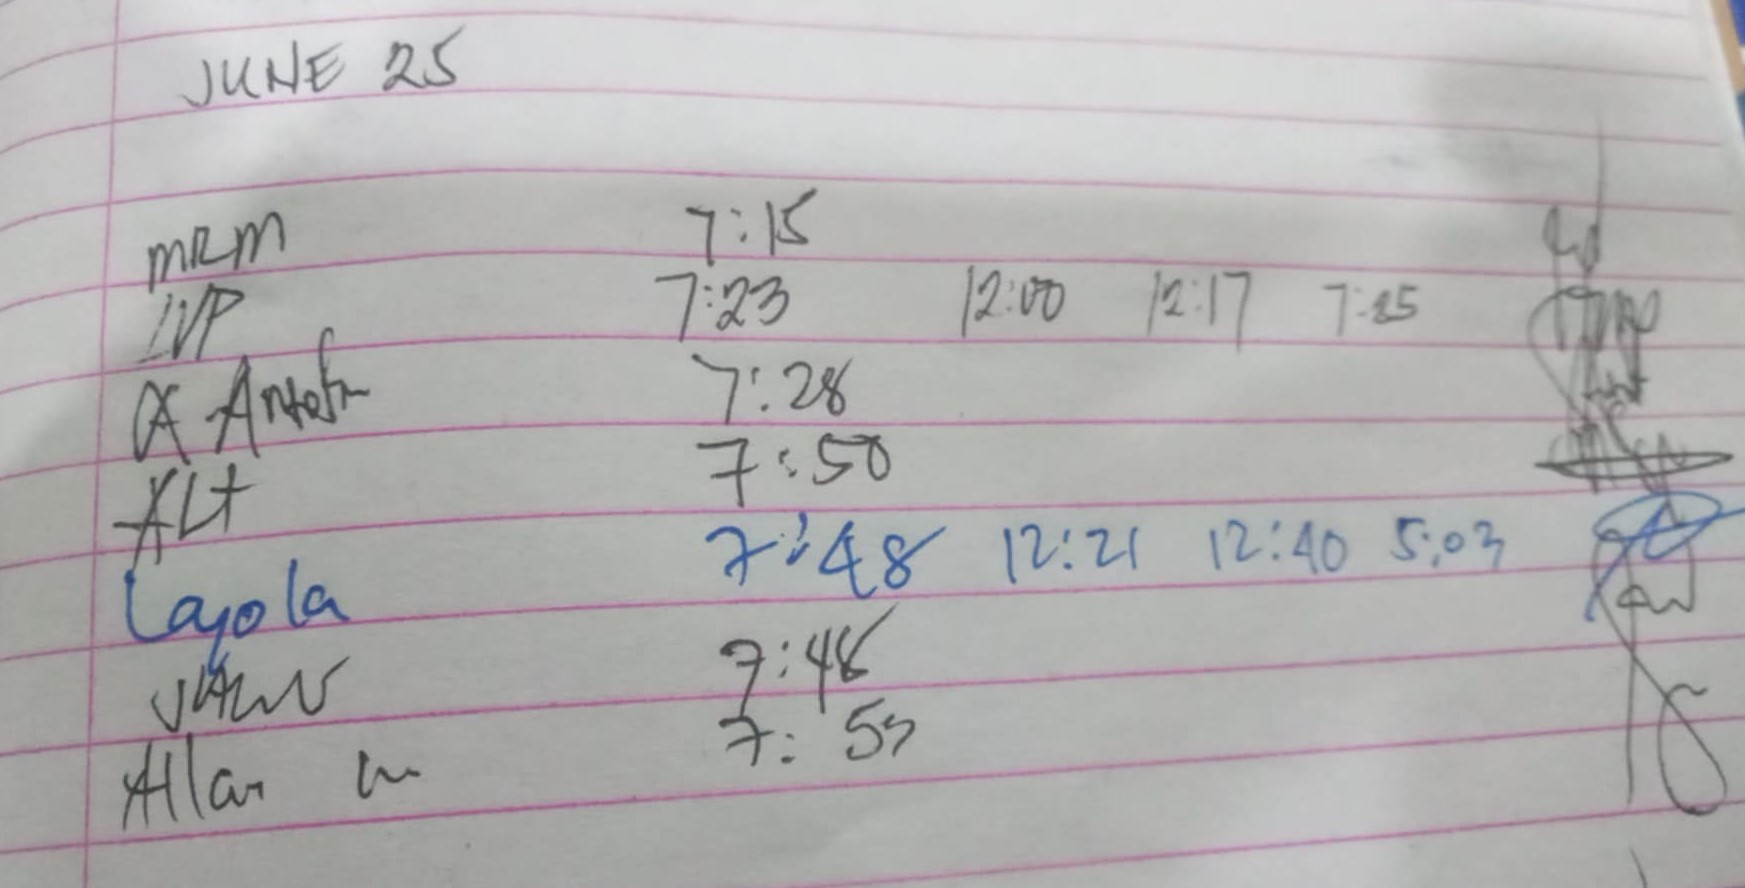 JUNE 25
MRM 7:15
LVP 7:23 12:00 12:17
7:28
ALT 7:50
Layola 7:48 12:21 12:40 5:03
7:48
Allan m 7:55